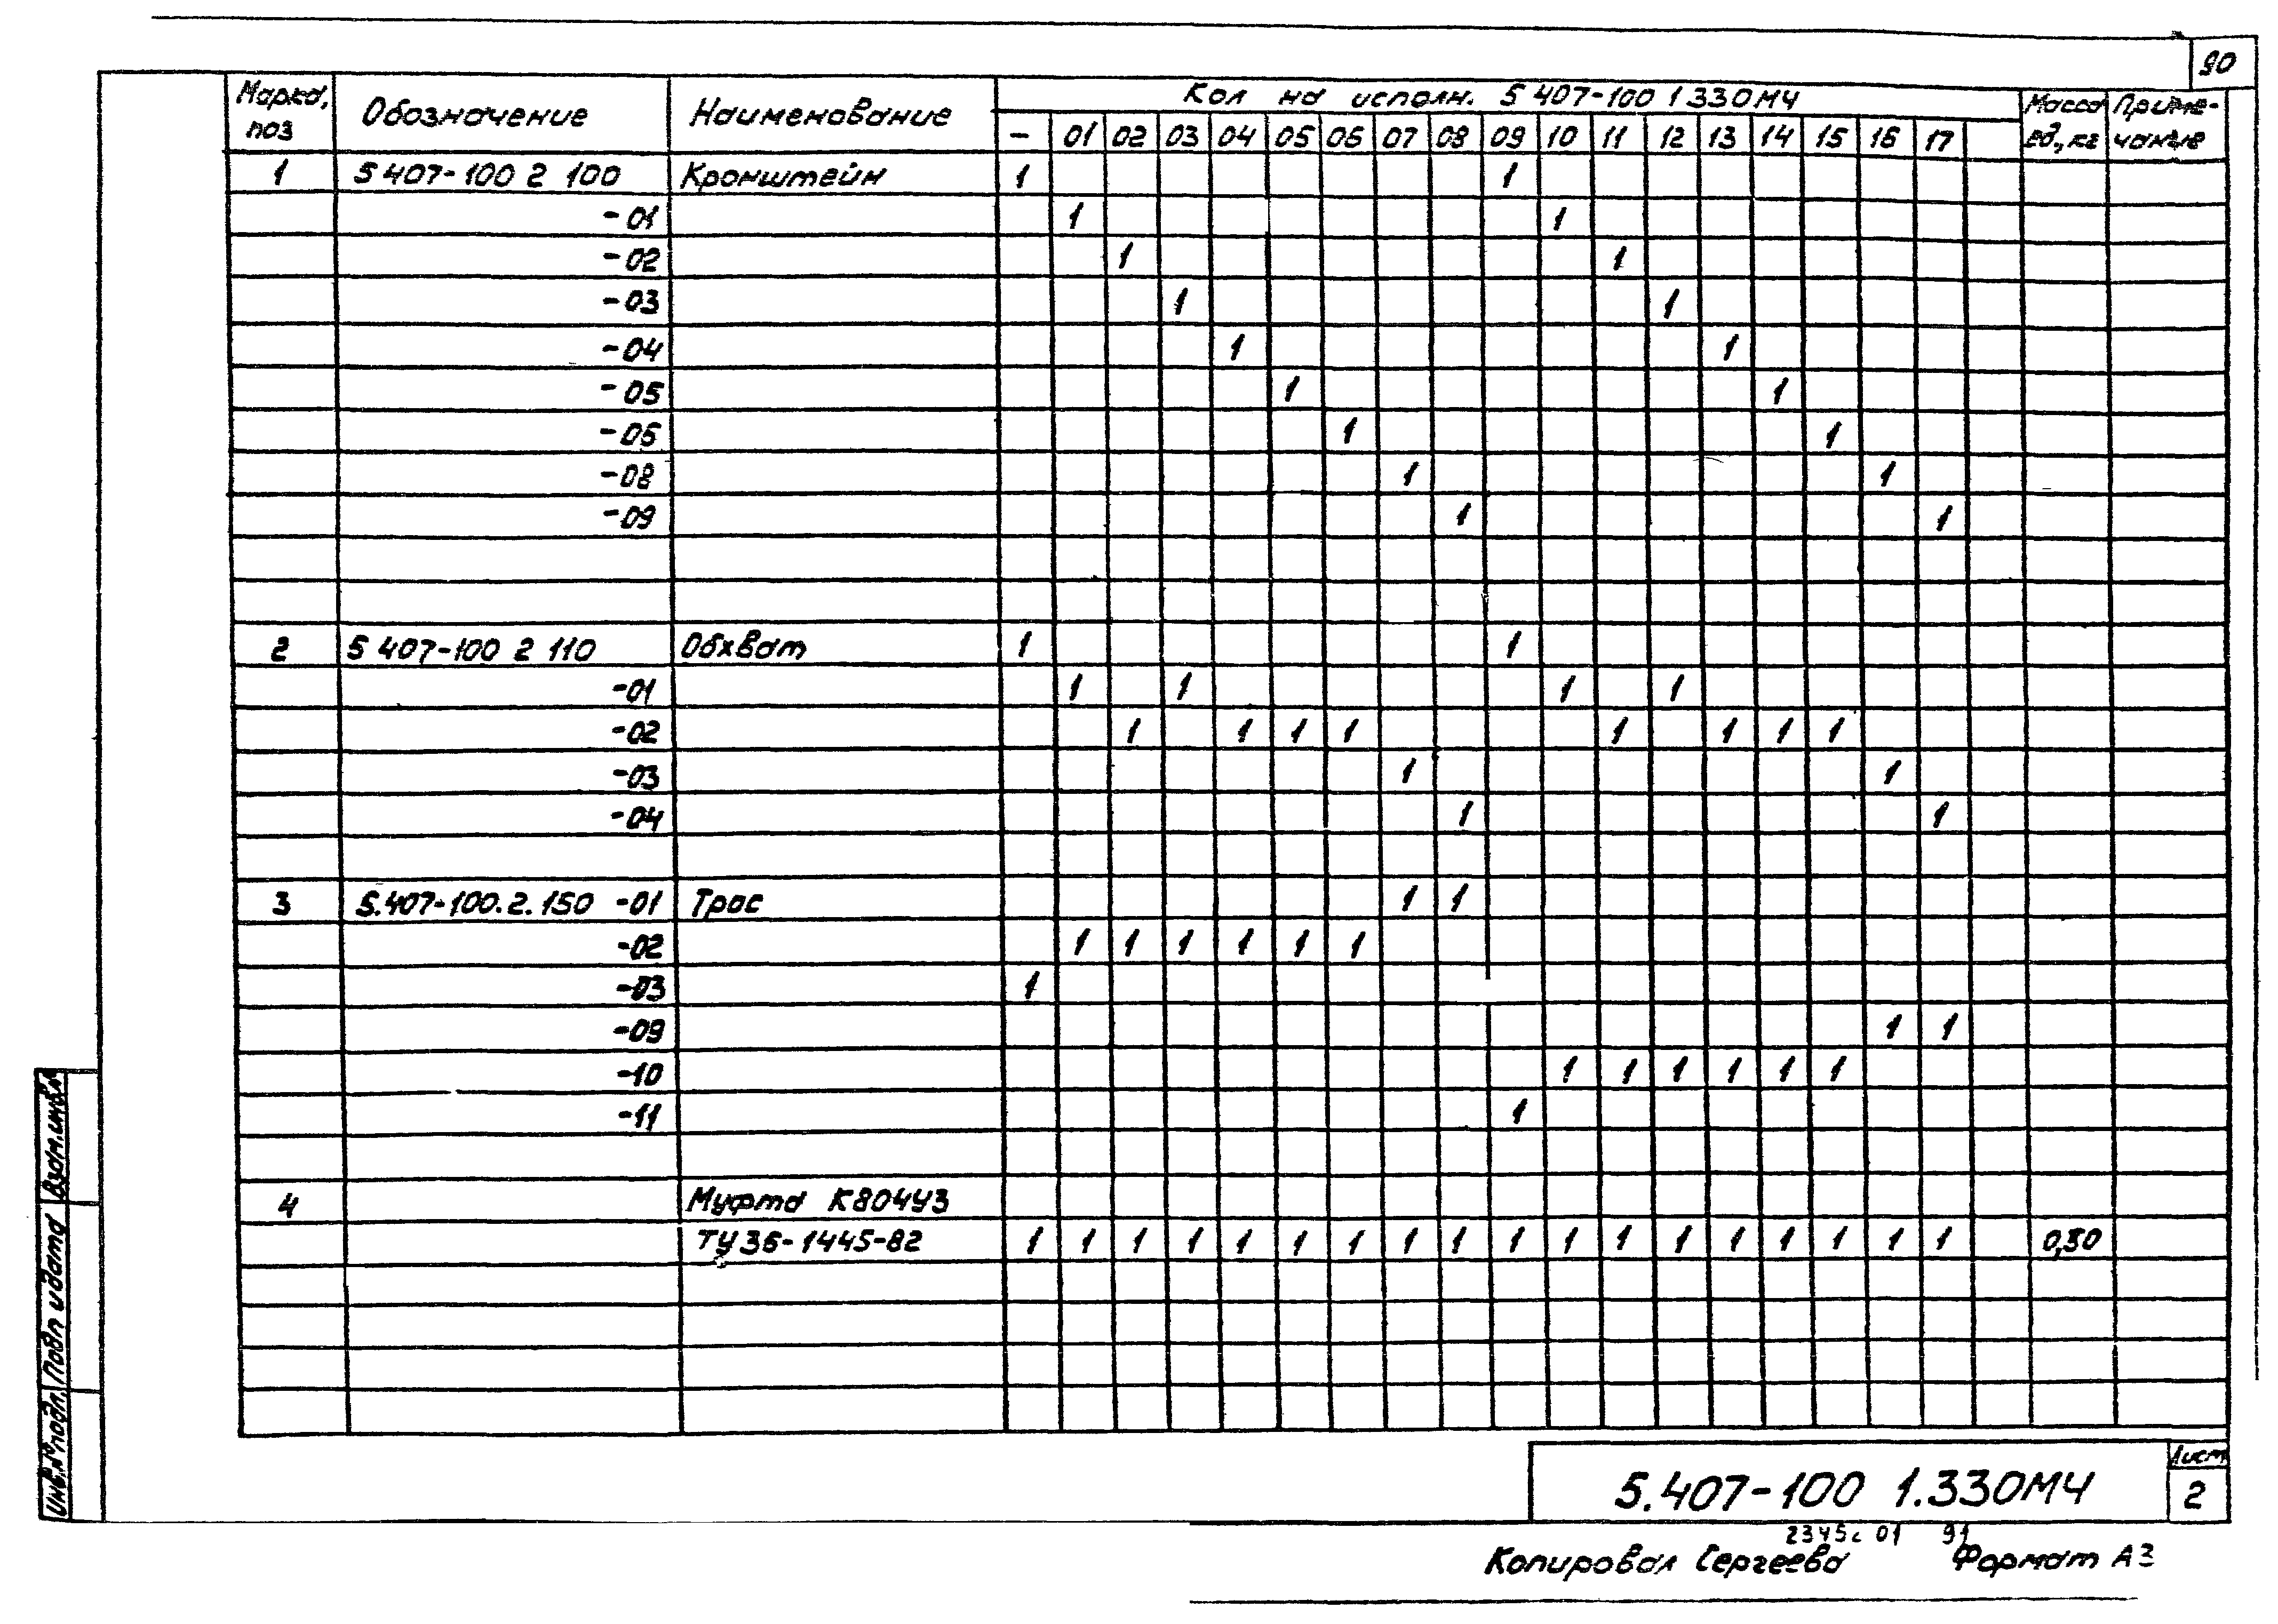 90
Марка, поз Обозначение Наименование Кол на исполн. 5 407-100 1 330МЧ Масса ед., кг Приме-чание
– 01 02 03 04 05 06 07 08 09 10 11 12 13 14 15 16 17
1 5 407-100 2 100 Кронштейн 1 1
-01 1 1
-02 1 1
-03 1 1
-04 1 1
-05 1 1
-06 1 1
-08 1 1
-09 1 1
2 5 407-100 2 110 Обхват 1 1
-01 1 1 1 1
-02 1 1 1 1 1 1 1 1
-03 1 1
-04 1 1
3 5.407-100.2.150 -01 Трос 1 1
-02 1 1 1 1 1 1
-03 1
-09 1 1
-10 1 1 1 1 1 1
-11 1
4 Муфта К804У3
ТУ36-1445-82 1 1 1 1 1 1 1 1 1 1 1 1 1 1 1 1 1 1 0,30
Взам.инв.№
Подп и дата
Инв.№ подл.
5.407-100 1.330МЧ
Лист
2
2345с 01 91
Копировал Сергеева Формат А3